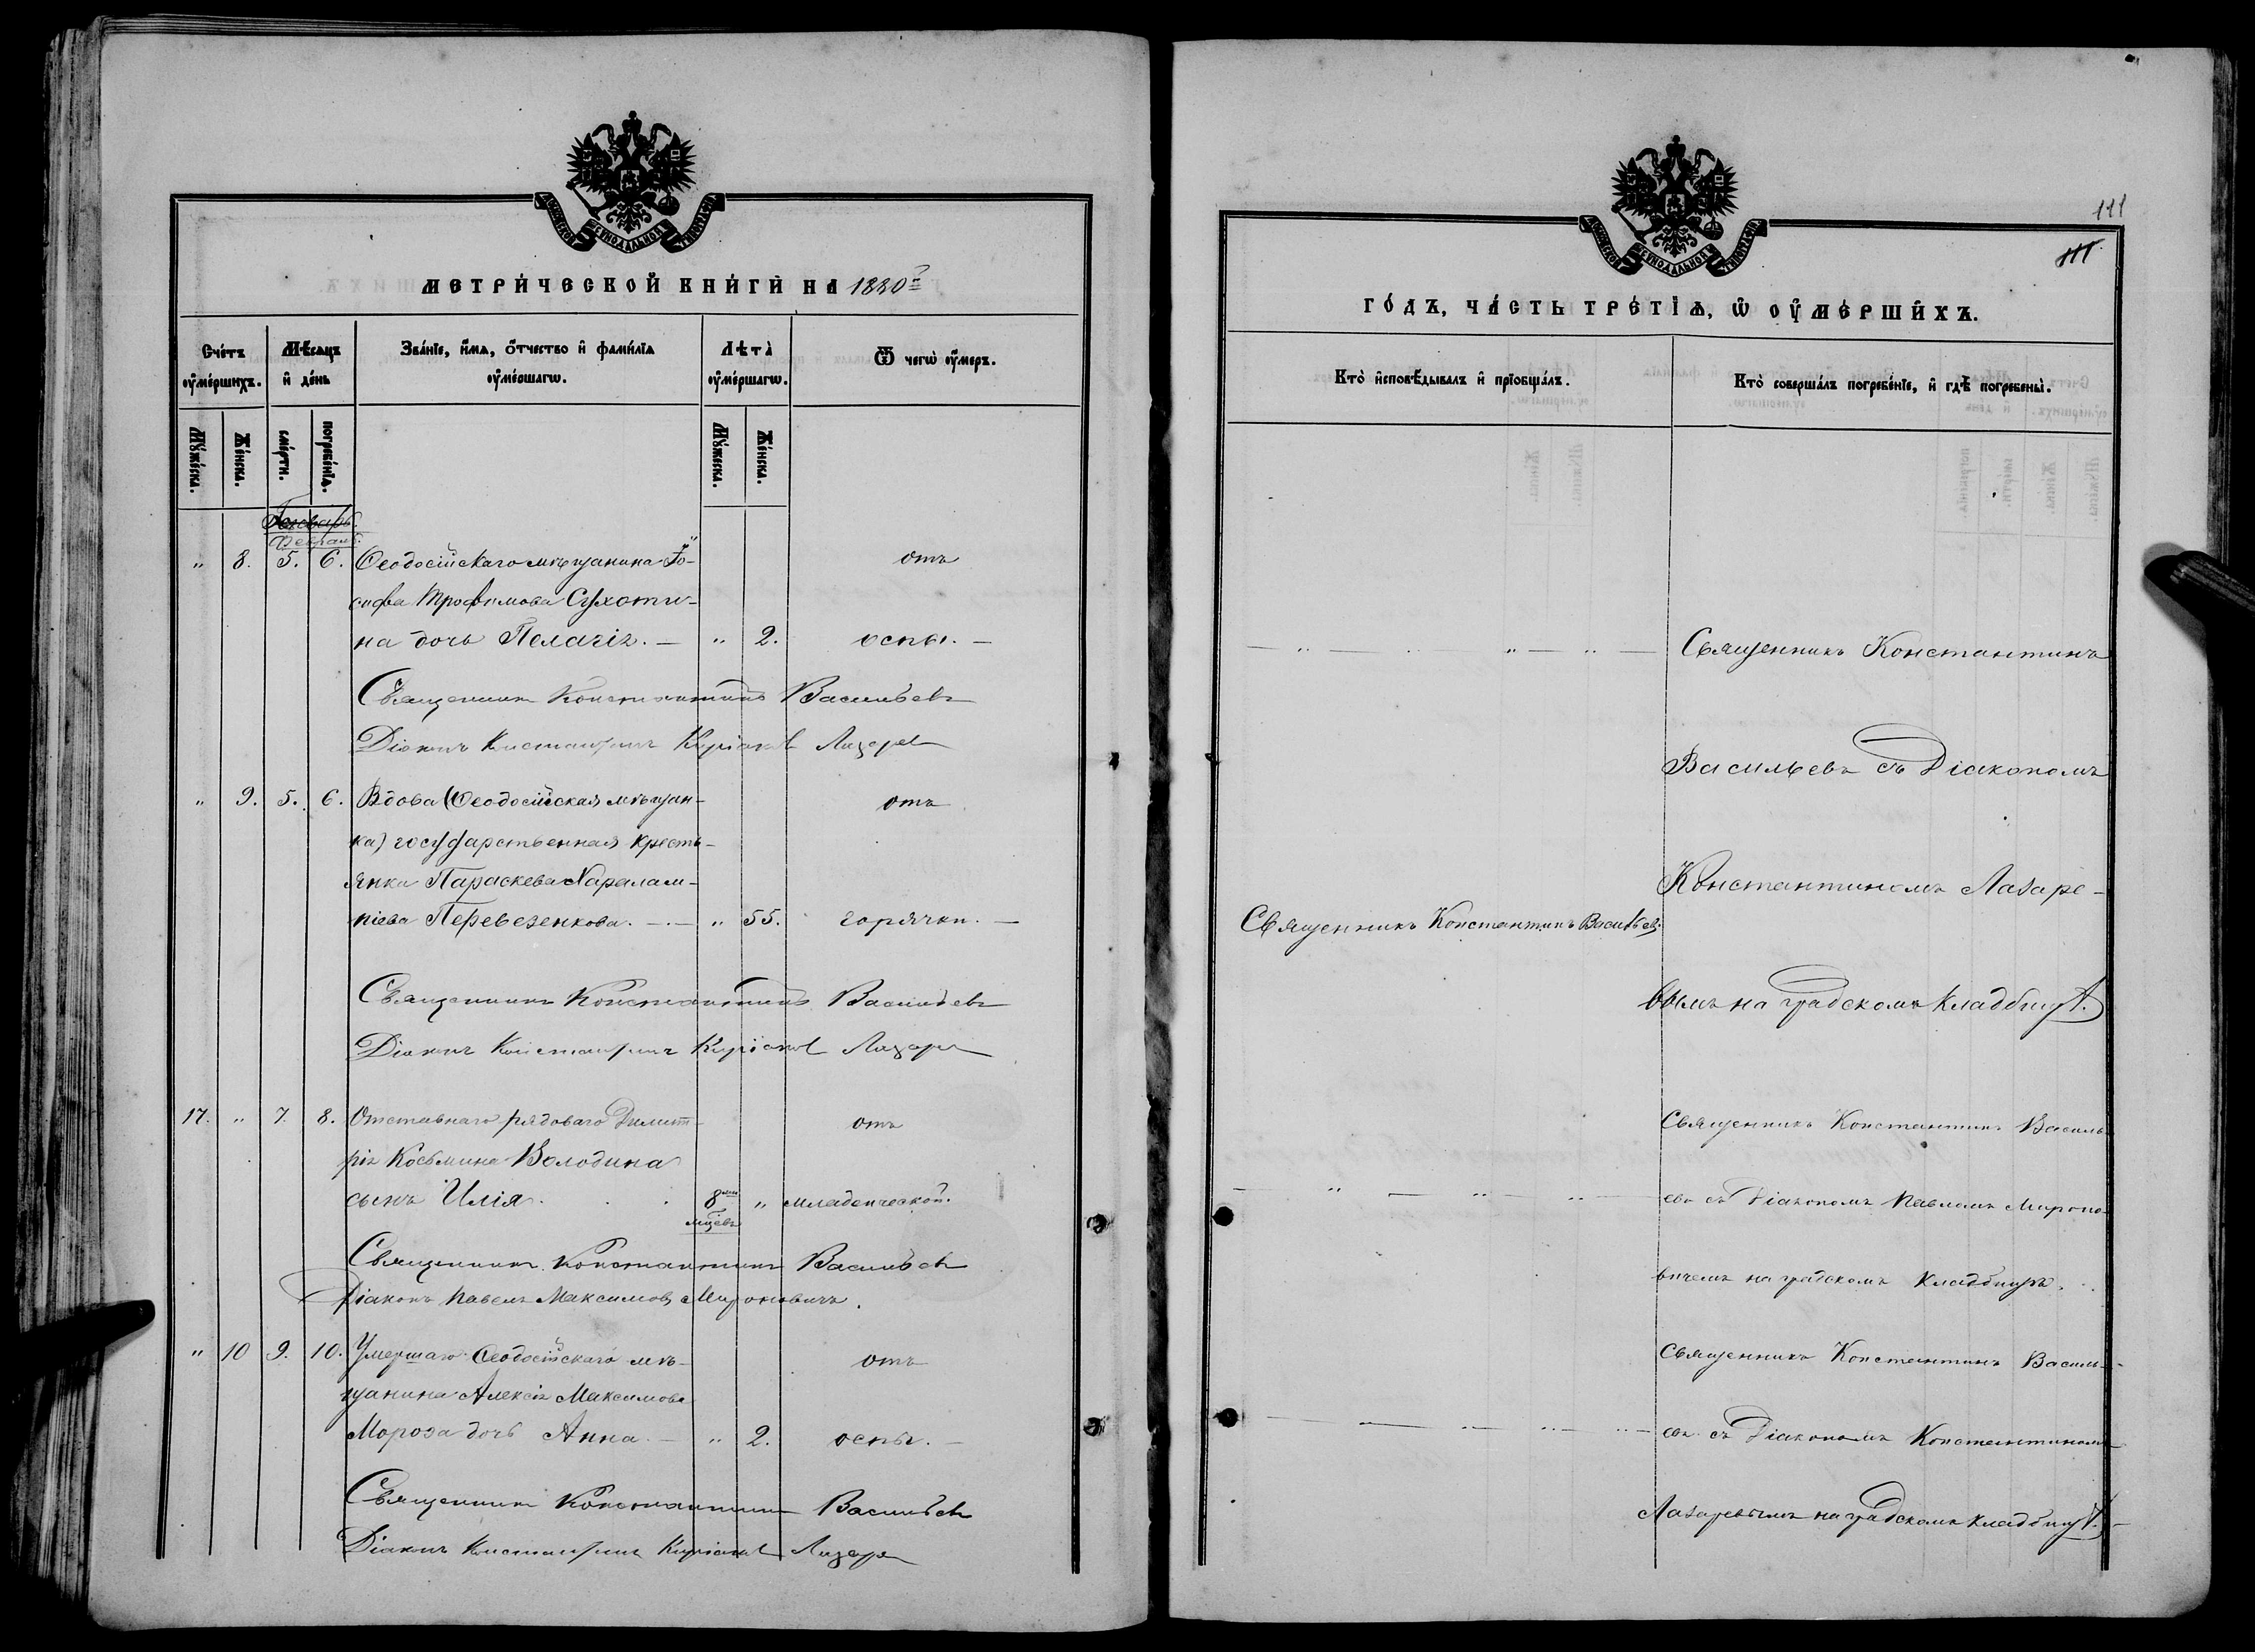 МЕТРИ́ЧЕСКОЙ КНИ́ГИ НА 1880й
Сче́тъ ᲂу҆ме́ршихъ.
Мѣ́сяцъ и҆ де́нь
Зва́нїе, и҆́мѧ, ѻ҆́тчество и҆ фами́лїѧ ᲂу҆ме́ршагѡ.
Лѣта̀ ᲂу҆ме́ршагѡ.
Ѿ чегѡ̀ ᲂу҆́меръ.
Мꙋ́жеска.
Же́нска.
сме́рти.
погребе́нїѧ.
Мꙋ́жеска.
Же́нска.
Январь.
Февраль.
" 8. 5. 6. Ѳеодосійскаго мѣщанина Іо- отъ
сифа Трофимова Сухоти-
на дочь Пелагія. — " 2. оспы. —
Священникъ Константинъ Васильевъ
Діаконъ Константинъ Киріаковъ Лазаревъ
" 9. 5. 6. Вдова (Ѳеодосійская мѣщан- отъ
ка) государственная кресть-
янка Параскева Харалам-
піева Перевезенкова. — " 55. горячки. —
Священникъ Константинъ Васильевъ
Діаконъ Константинъ Киріаковъ Лазаревъ
17. " 7. 8. Отставнаго рядоваго Димит- отъ
рія Косьмина Володина
сынъ Илія. 8ми мцѣвъ " младенческой.
Священникъ Константинъ Васильевъ
Діаконъ Павелъ Максимовъ Мироновичъ.
" 10 9. 10. Умершаго Ѳеодосійскаго мѣ- отъ
щанина Алексія Максимова
Мороза дочь Анна. — " 2. оспы. —
Священникъ Константинъ Васильевъ
Діаконъ Константинъ Киріаковъ Лазаревъ
111
111.
ГО́ДЪ, ЧА́СТЬ ТРЕ́ТІѦ, Ѡ҆ ОУ҆МЕ́РШИХЪ.
Кто̀ и҆сповѣ́дывалъ и҆ прїѡбща́лъ.
Кто̀ соверша́лъ погребе́нїе, и҆ гдѣ̀ погребены̀.
Священникъ Константинъ
Васильевъ съ Діакономъ
Константиномъ Лазаре-
Священникъ Константинъ Васильев.
вымъ на градскомъ кладбищѣ.
Священникъ Константинъ Василь-
евъ съ Діакономъ Павломъ Мироно-
вичемъ на градскомъ кладбищѣ.
Священникъ Константинъ Василь-
евъ съ Діакономъ Константиномъ
Лазаревымъ на градскомъ кладбищѣ.